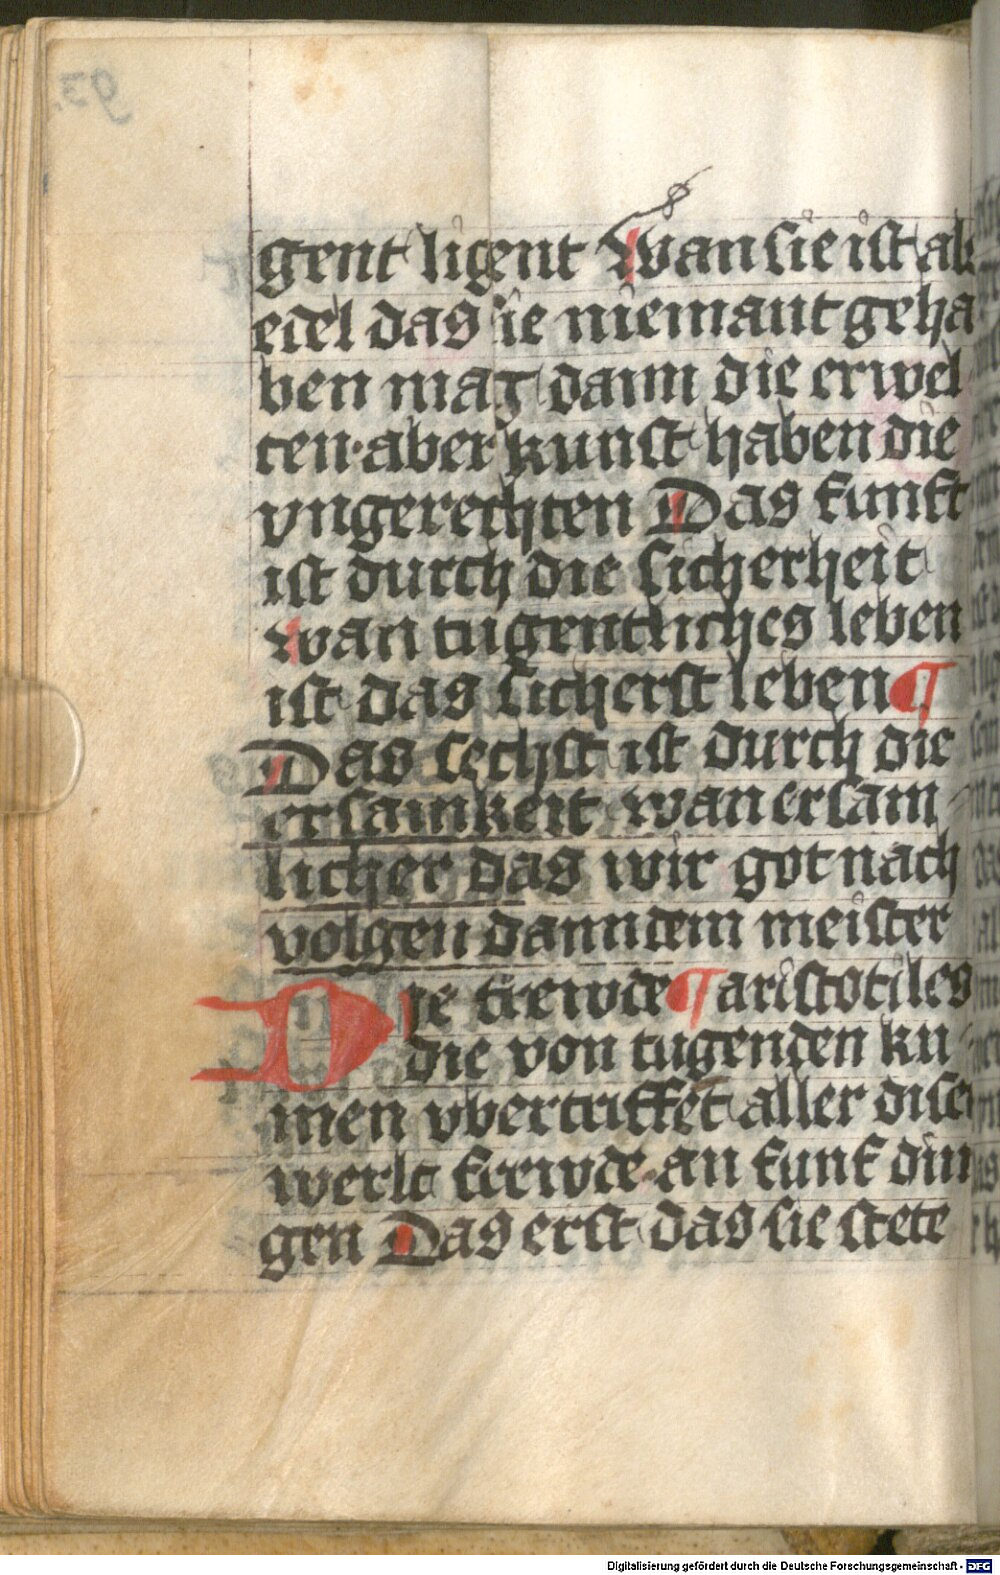 93
gent ligent Wan sie ist als
edel das sie niemant geha
ben mag dann die erwel
ten · aber kunst haben die
vngerechten Das funft
ist durch die sicherheit
wan tugentliches leben
ist das sicherst leben ¶
Das sechst ist durch die
ersamkeit wan ersam
licher das wir got nach
volgen dann dem meister
Die frewde ¶ aristotiles
die von tugenden ku
men vbertriffet aller diser
werlt frewde · an funf din
gen Das erst das sie stete
Digitalisierung gefördert durch die Deutsche Forschungsgemeinschaft - DFG